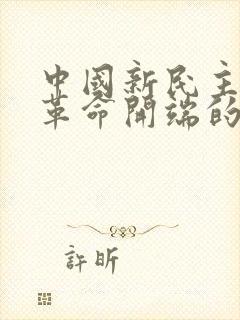 中國新民主
革命開端的
許昕